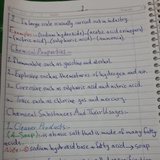 1
2. In large scale usually carried out in industry.
Examples: (Sodium hydroxide), (acetic acid (vinegar))
(nitric acid), (sulphuric acid), (ammonia)
Chemical Properties:
1. Flammable such as gasoline and alcohol.
2. Explosive such as the mixture of hydrogen and air.
3. Corrosive such as sulphuric acid and nitric acid.
4. Toxic such as chlorine gas and mercury.
Chemical Substances And Their Usages:
1- Cleaner Products:
a. Soap: is a sodium salt that is made of many fatty
acids.
sodium hydroxide base + fatty acid → soap